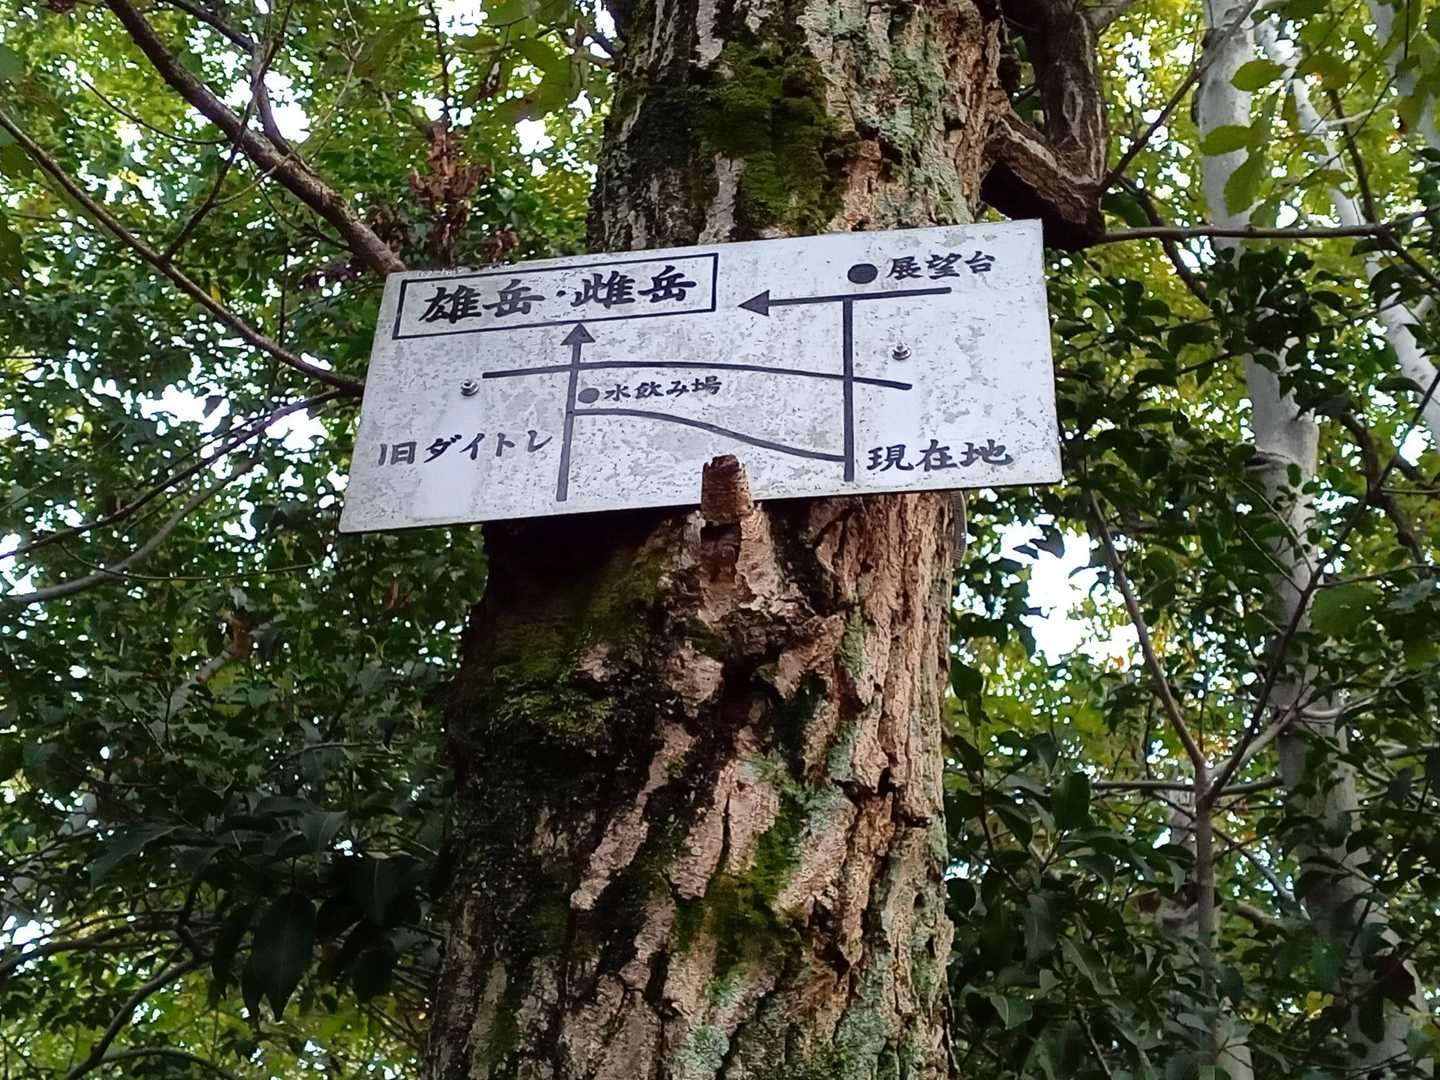 展望台
雄岳・雌岳
水飲み場
旧ダイトレ
現在地